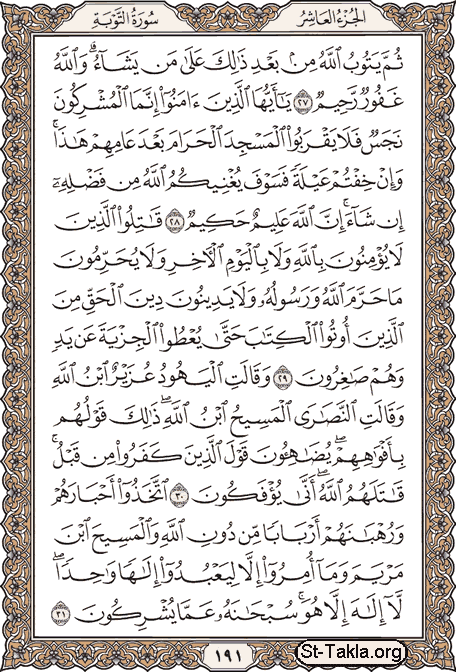 الجزء العاشر
سورة التوبة
ثُمَّ يَتُوبُ ٱللَّهُ مِنۢ بَعۡدِ ذَٰلِكَ عَلَىٰ مَن يَشَآءُۗ وَٱللَّهُ
غَفُورٞ رَّحِيمٞ ٢٧ يَٰٓأَيُّهَا ٱلَّذِينَ ءَامَنُوٓاْ إِنَّمَا ٱلۡمُشۡرِكُونَ
نَجَسٞ فَلَا يَقۡرَبُواْ ٱلۡمَسۡجِدَ ٱلۡحَرَامَ بَعۡدَ عَامِهِمۡ هَٰذَاۚ
وَإِنۡ خِفۡتُمۡ عَيۡلَةٗ فَسَوۡفَ يُغۡنِيكُمُ ٱللَّهُ مِن فَضۡلِهِۦٓ
إِن شَآءَۚ إِنَّ ٱللَّهَ عَلِيمٌ حَكِيمٞ ٢٨ قَٰتِلُواْ ٱلَّذِينَ
لَا يُؤۡمِنُونَ بِٱللَّهِ وَلَا بِٱلۡيَوۡمِ ٱلۡأٓخِرِ وَلَا يُحَرِّمُونَ
مَا حَرَّمَ ٱللَّهُ وَرَسُولُهُۥ وَلَا يَدِينُونَ دِينَ ٱلۡحَقِّ مِنَ
ٱلَّذِينَ أُوتُواْ ٱلۡكِتَٰبَ حَتَّىٰ يُعۡطُواْ ٱلۡجِزۡيَةَ عَن يَدٖ
وَهُمۡ صَٰغِرُونَ ٢٩ وَقَالَتِ ٱلۡيَهُودُ عُزَيۡرٌ ٱبۡنُ ٱللَّهِ
وَقَالَتِ ٱلنَّصَٰرَى ٱلۡمَسِيحُ ٱبۡنُ ٱللَّهِۖ ذَٰلِكَ قَوۡلُهُم
بِأَفۡوَٰهِهِمۡۖ يُضَٰهِـُٔونَ قَوۡلَ ٱلَّذِينَ كَفَرُواْ مِن قَبۡلُۚ
قَٰتَلَهُمُ ٱللَّهُۖ أَنَّىٰ يُؤۡفَكُونَ ٣٠ ٱتَّخَذُوٓاْ أَحۡبَارَهُمۡ
وَرُهۡبَٰنَهُمۡ أَرۡبَابٗا مِّن دُونِ ٱللَّهِ وَٱلۡمَسِيحَ ٱبۡنَ
مَرۡيَمَ وَمَآ أُمِرُوٓاْ إِلَّا لِيَعۡبُدُوٓاْ إِلَٰهٗا وَٰحِدٗاۖ
لَّآ إِلَٰهَ إِلَّا هُوَۚ سُبۡحَٰنَهُۥ عَمَّا يُشۡرِكُونَ ٣١
١٩١
St-Takla.org